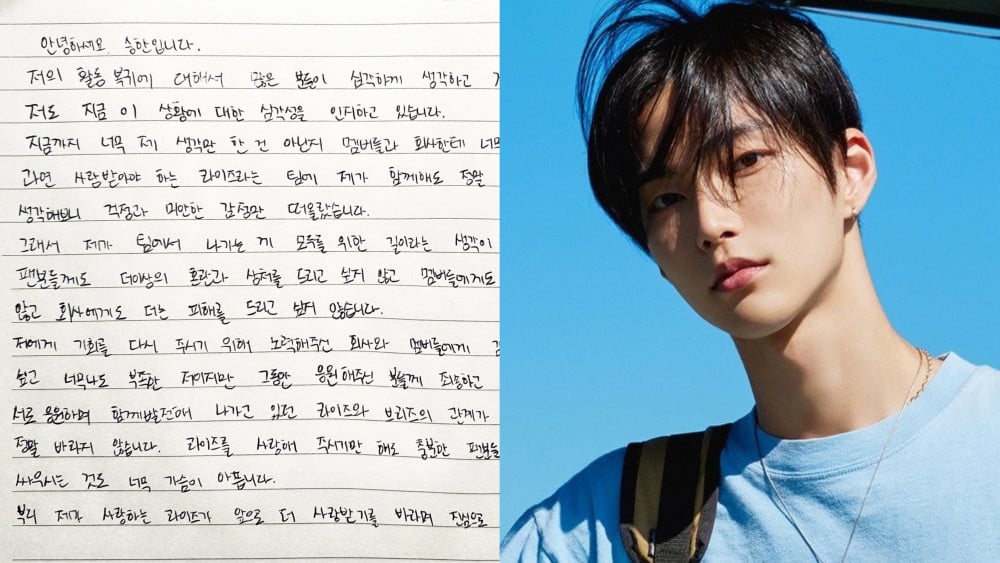 안녕하세요, 승한입니다.
저의 활동 복귀에 대해서 많은 분들이 심각하게 생각하고
저도 지금 이 상황에 대한 심각성을 인지하고 있습니다.
지금까지 너무 제 생각만 한 건 아닌지 멤버들과 회사한테 너무
과연 사랑받아야 하는 라이즈라는 팀에 제가 함께해도 정말
생각해보니 걱정과 미안한 감정만 떠올랐습니다.
그래서 제가 팀에서 나가는 게 모두를 위한 길이라는 생각이
팬분들께도 더이상의 혼란과 상처를 드리고 싶지 않고 멤버들에게도
않고 회사에게도 더는 피해를 드리고 싶지 않습니다.
저에게 기회를 다시 주시기 위해 노력해주신 회사와 멤버들에게
싶고 너무나도 부족한 저이지만 그동안 응원해주신 분들께 죄송하고
서로 응원하며 함께발전해 나가고 있던 라이즈와 브리즈의 관계가
정말 바라지 않습니다. 라이즈를 사랑해 주시기만 해도 충분한 팬분들
싸우시는 것도 너무 가슴이 아픕니다.
부디 제가 사랑하는 라이즈가 앞으로 더 사랑받기를 바라며 진심으로